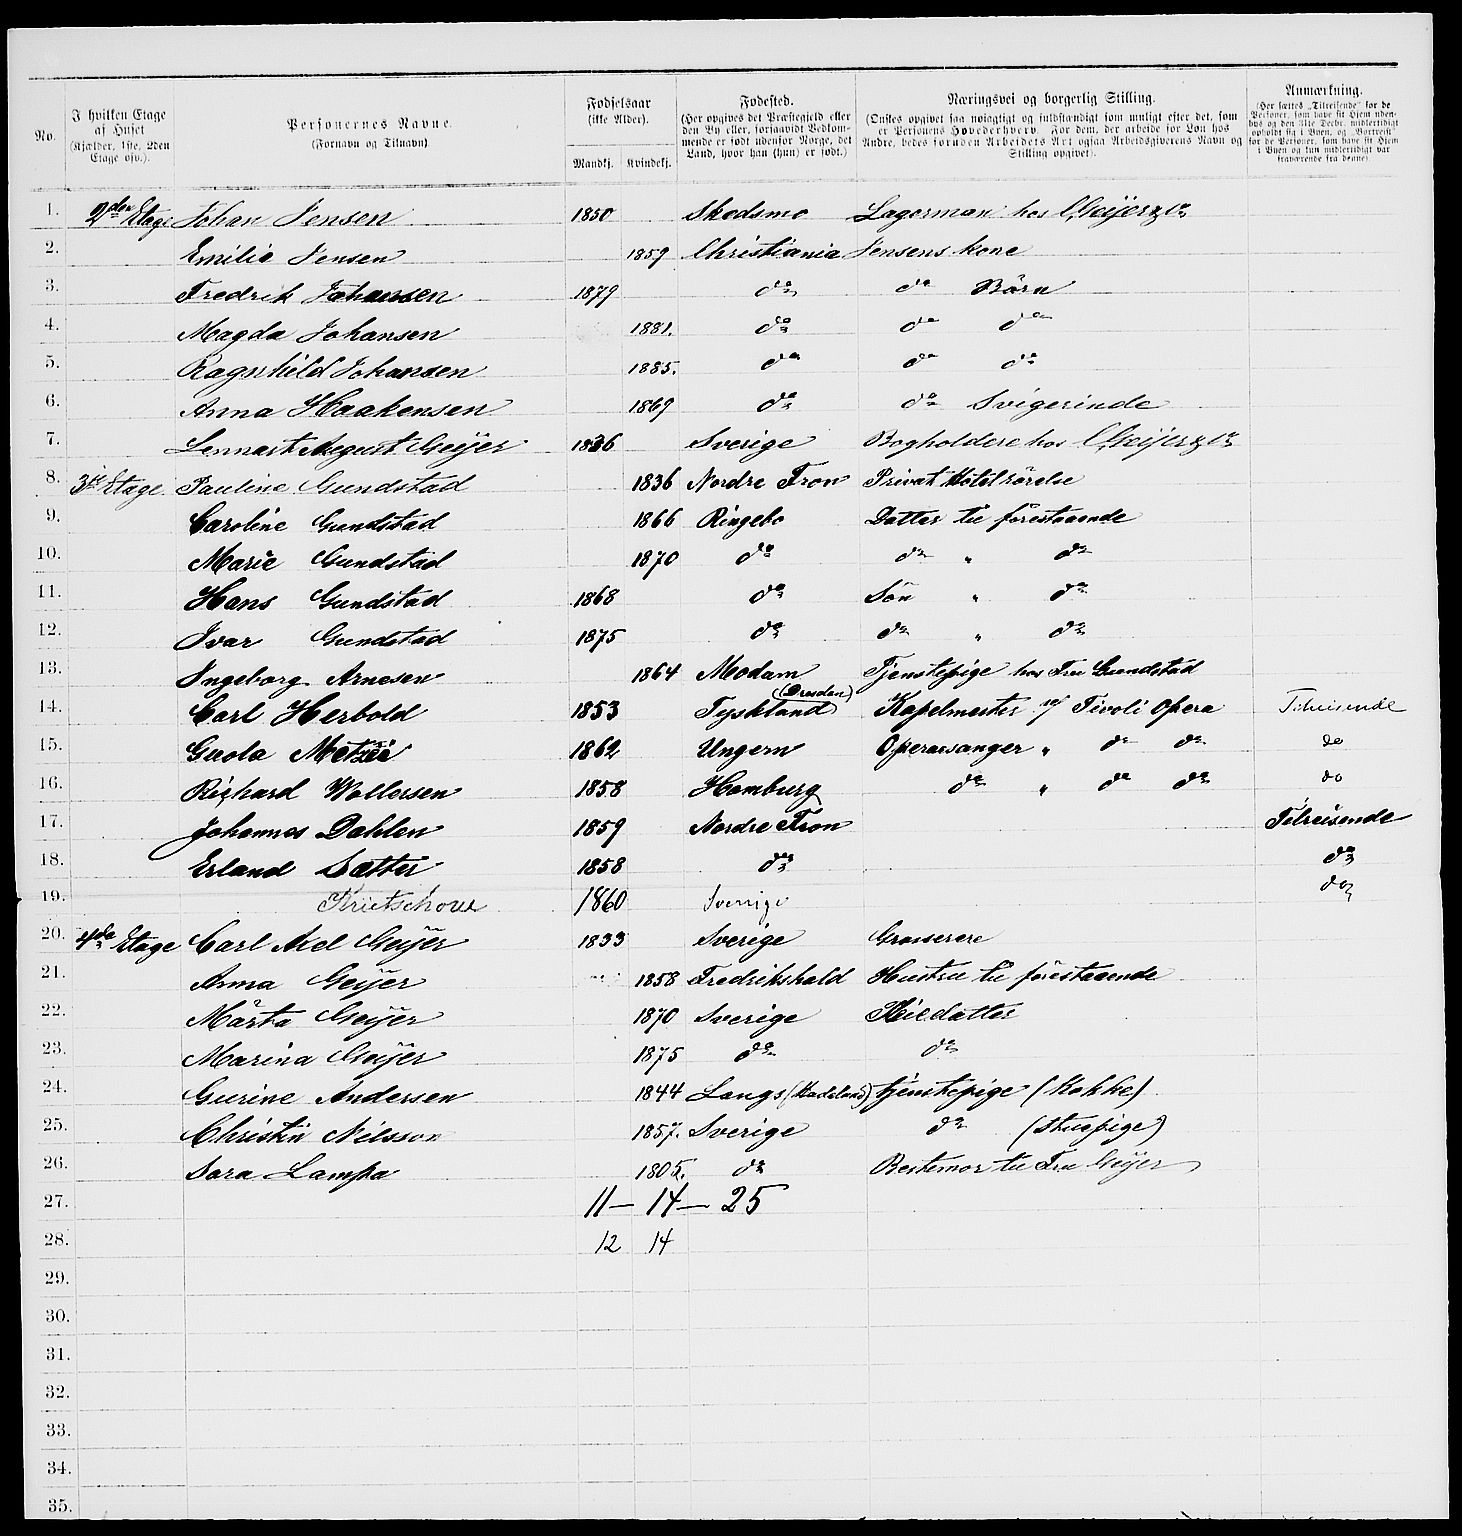 No. I hvilken Etage af Huset (Kjælder, 1ste, 2den Etage osv.). Personernes Navne. (Fornavn og Tilnavn) Fødselsaar (ikke Alder). Mandkj. Kvindekj. Fødested. (Her opgives det Præstegjeld eller den By eller, forsaavidt Vedkommende er født udenfor Norge, det Land, hvor han (hun) er født.) Næringsvei og borgerlig Stilling. (Ønskes opgivet saa nøiagtigt og fuldstændigt som muligt efter det, som er Personens Hovederhverv. For dem, der arbeide for Løn hos Andre, bedes foruden Arbeidets Art ogsaa Arbeidsgiverens Navn og Stilling opgivet). Anmærkning. (Her sættes „Tilreisende" for de Personer, som have sit Hjem udenbys og den 31te Decbr. midlertidigt opholdt sig i Byen, og „Bortreist" for de Personer, som have sit Hjem i Byen og kun midlertidigt var fraværende fra denne).
1. 2den Etage Johan Jensen 1850 Skedsmo Lagerman hos C. Geijer & Co
2. Emilie Jensen 1859 Christiania Jensens kone
3. Fredrik Johansen 1879 do do Börn
4. Magda Johansen 1881. do do do
5. Ragnhild Johansen 1885. do do do
6. Anna Haakensen 1869 do do Svigerinde
7. Lennart August Geijer 1836 Sverige Bogholdere hos C. Geijer & Co
8. 3die Etage Pauline Gundstad 1836 Nordre Fron Privat Hotelrörelse
9. Caroline Gundstad 1866 Ringebo Datter til förestaaende
10. Marie Gundstad 1870 do do " do
11. Hans Gundstad 1868 do Sön " do
12. Ivar Gundstad 1875 do do " do
13. Ingeborg Arnesen 1864 Modum Tjenstepige hos Fru Gundstad
14. Carl Herbold 1853 Tyskland (Dresden) Kapelmester v/ Tivoli Opera Tilreisende
15. 1862 Ungern Operasanger " do do do
16. Richard Wollersen 1858 Hamburg do " do do do
17. Johannes Dahlen 1859 Nordre Fron Tilreisende
18. Erland Sætter 1858 do do
19. 1860 Sverrige do
20. 4de Etage Carl Axel Geijer 1833 Sverige Grosserere
21. Anna Geijer 1858 Fredrikshald Hustru til förestaaende
22. Märta Geijer 1870 Sverige
23. Marina Geijer 1875 do do
24. Gurine Andersen 1844 (Hadeland) tjenstepige (Kokke)
25. Christin Nilsson 1857. Sverige do (Stuepige)
26. Sara Lampa 1805. do Bestemor til Fru Geijer
27. 11 — 14 — 25
28. 12 14
29.
30.
31.
32.
33.
34.
35.